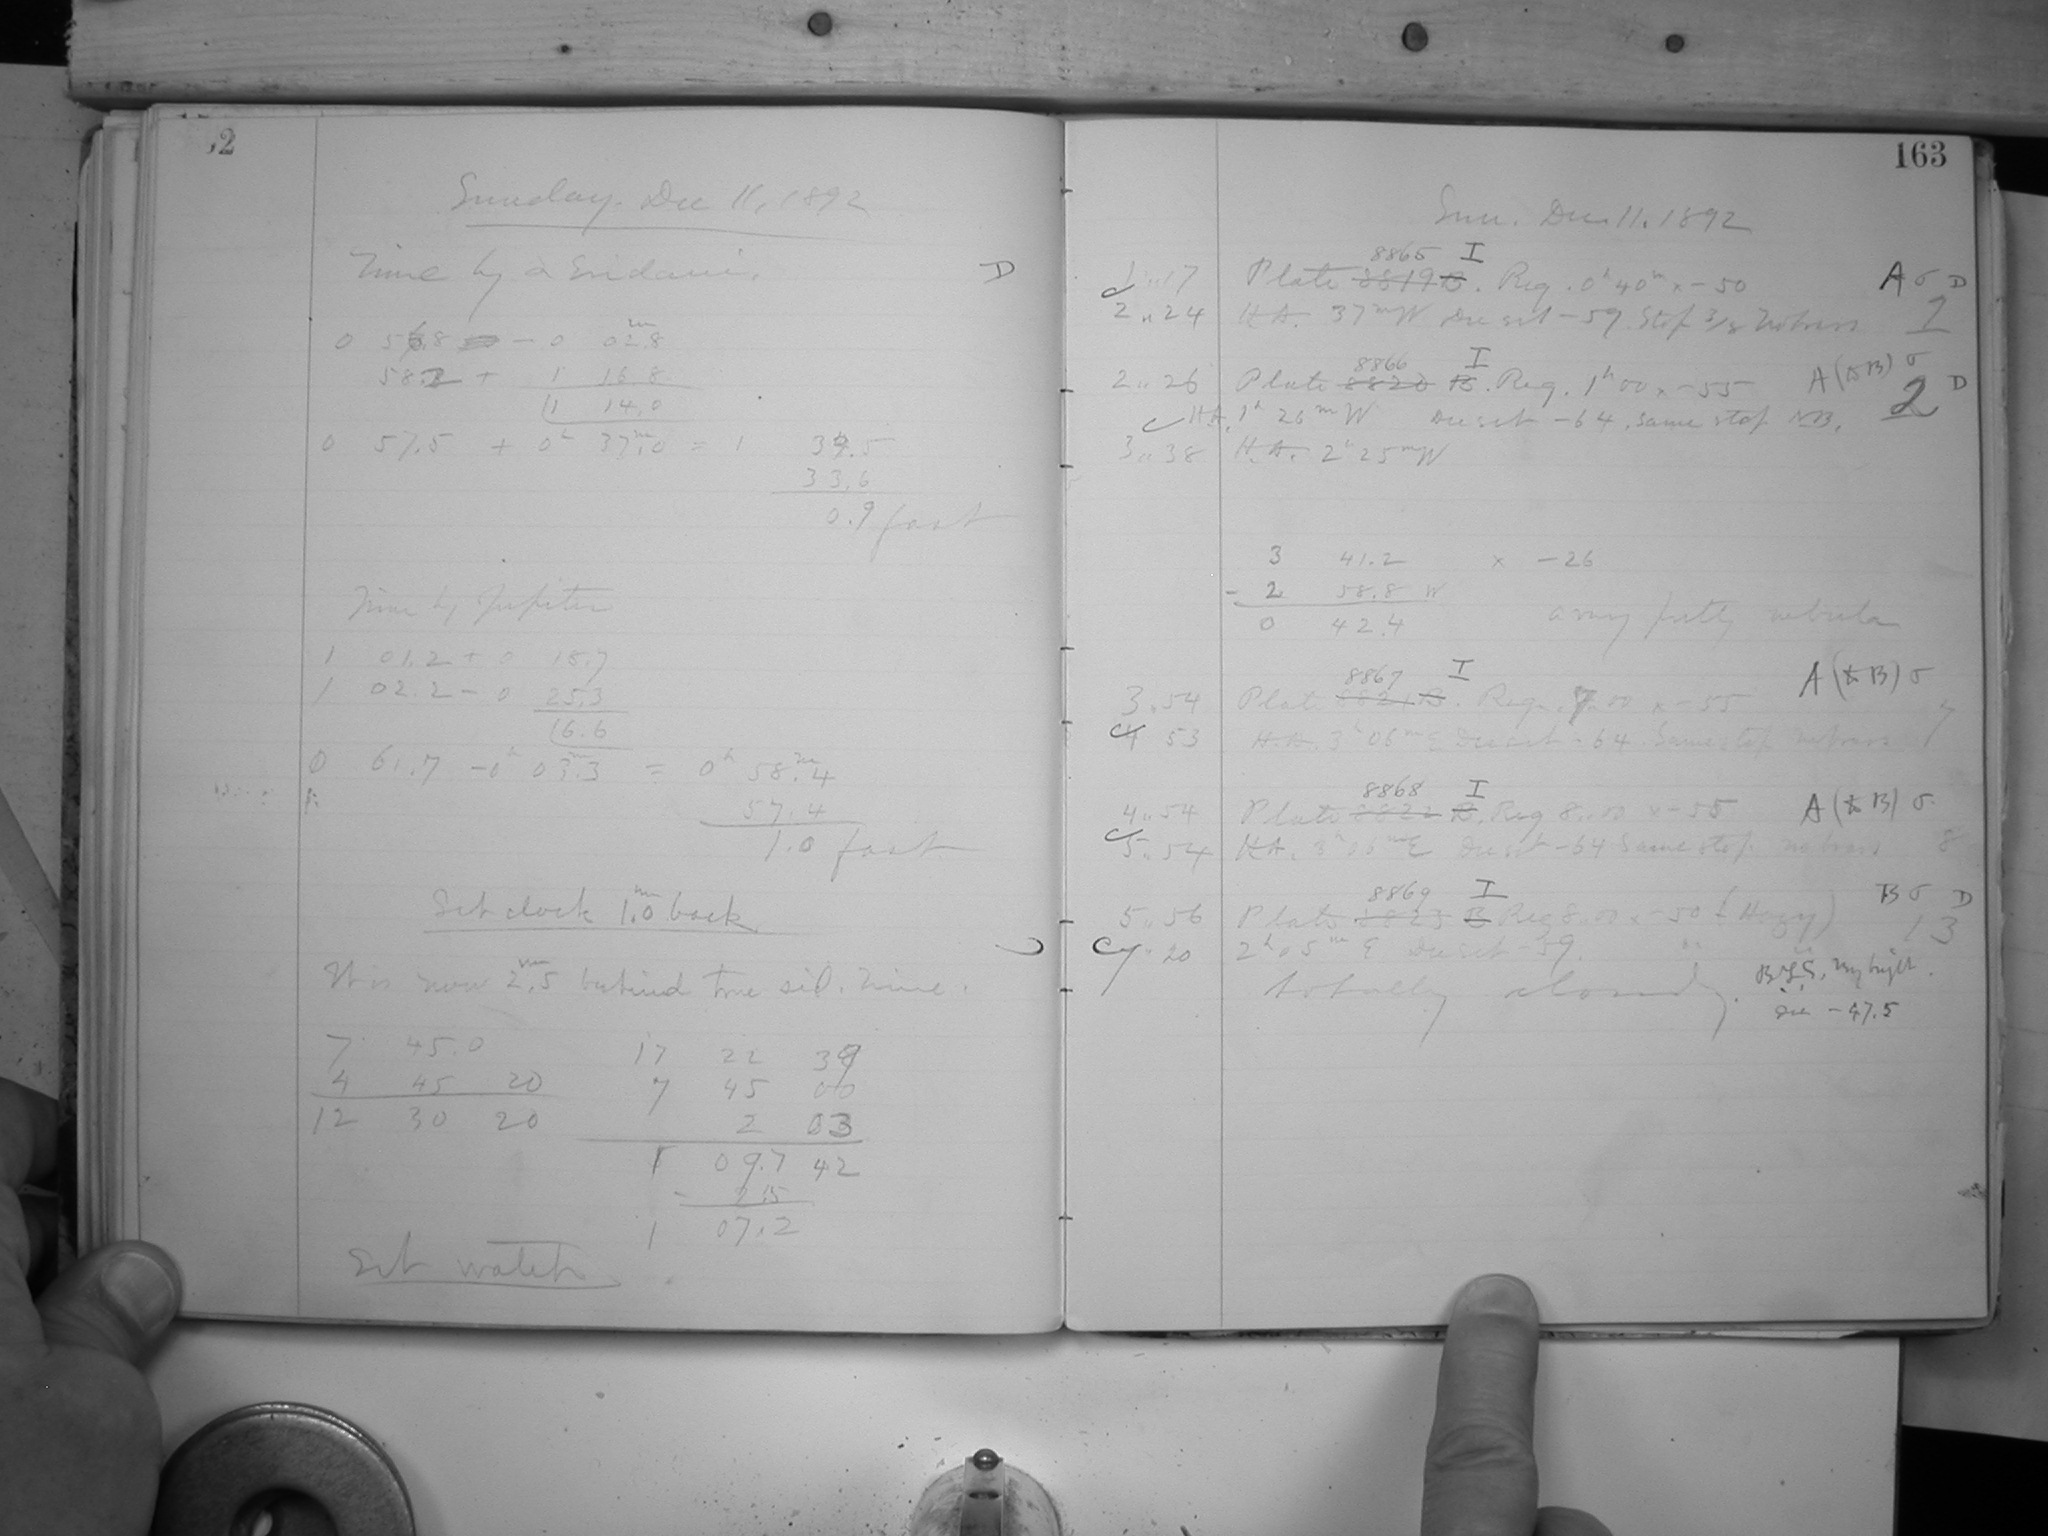 2
Sunday. Dec 11, 1892
Time by α Eridani.
D
0 56.8 - 0 02.8
58.2 + 1 16.8
1 14.0
0 57.5 + 0h 37m.0 = 1 34.5
33.6
0.9 fast
Time by Jupiter
1 01.2 + 0 18.7
1 02.2 - 0 25.3
16.6
0 61.7 - 0h 03m.3 = 0h 58m.4
57.4
1.0 fast
Set clock 1m.0 back
It is now 2m.5 behind true sid. time.
7 45.0 17 22 39
4 45 20 7 45 00
12 30 20 2 03
1 09.7 42
- 2.5
1 07.2
Set watch
163
Sun. Dec. 11, 1892
8865 I
1 17 Plate 8819 B. Reg. 0h 40m x - 50 A σ D
2 24 H.A. 37m W Dec set - 59. Stop 3/8 No trans 1
8866 I
2 26 Plate 8820 B. Reg. 1h 00 x - 55 A (& B) σ D
H.A. 1h 26m W Dec set - 64. Same stop NB. 2
3 38 H.A. 2h 25m W
3 41.2 x - 26
- 2 58.8 W
0 42.4 a very pretty nebula
8867 I
3 54 Plate 8821 B. Reg. 7 00 x - 55 A (& B) σ
4 53 H.A. 3h 06m E Dec set - 64. Same stop No trans 7
8868 I
4 54 Plate 8822 B. Reg 8 00 x - 55 A (& B) σ
5 54 H.A. 3h 06m E Dec set - 64 Same stop no trans 8
8869 I
5 56 Plate 8823 B Reg 8.00 x - 50 (Hazy) B σ D
7 20 2h 05m E Dec set - 59. 13
totally cloudy.
very bright.
Dec - 47.5